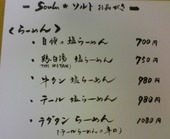 - Soulu * ソルト お品がき -
(らーめん)
・自慢の塩らーめん 700円
・鶏白湯塩らーめん 750円
・牛タン 塩らーめん 980円
・テール 塩らーめん 980円
・テグタン らーめん 1080円
(テールらーめんの辛口)